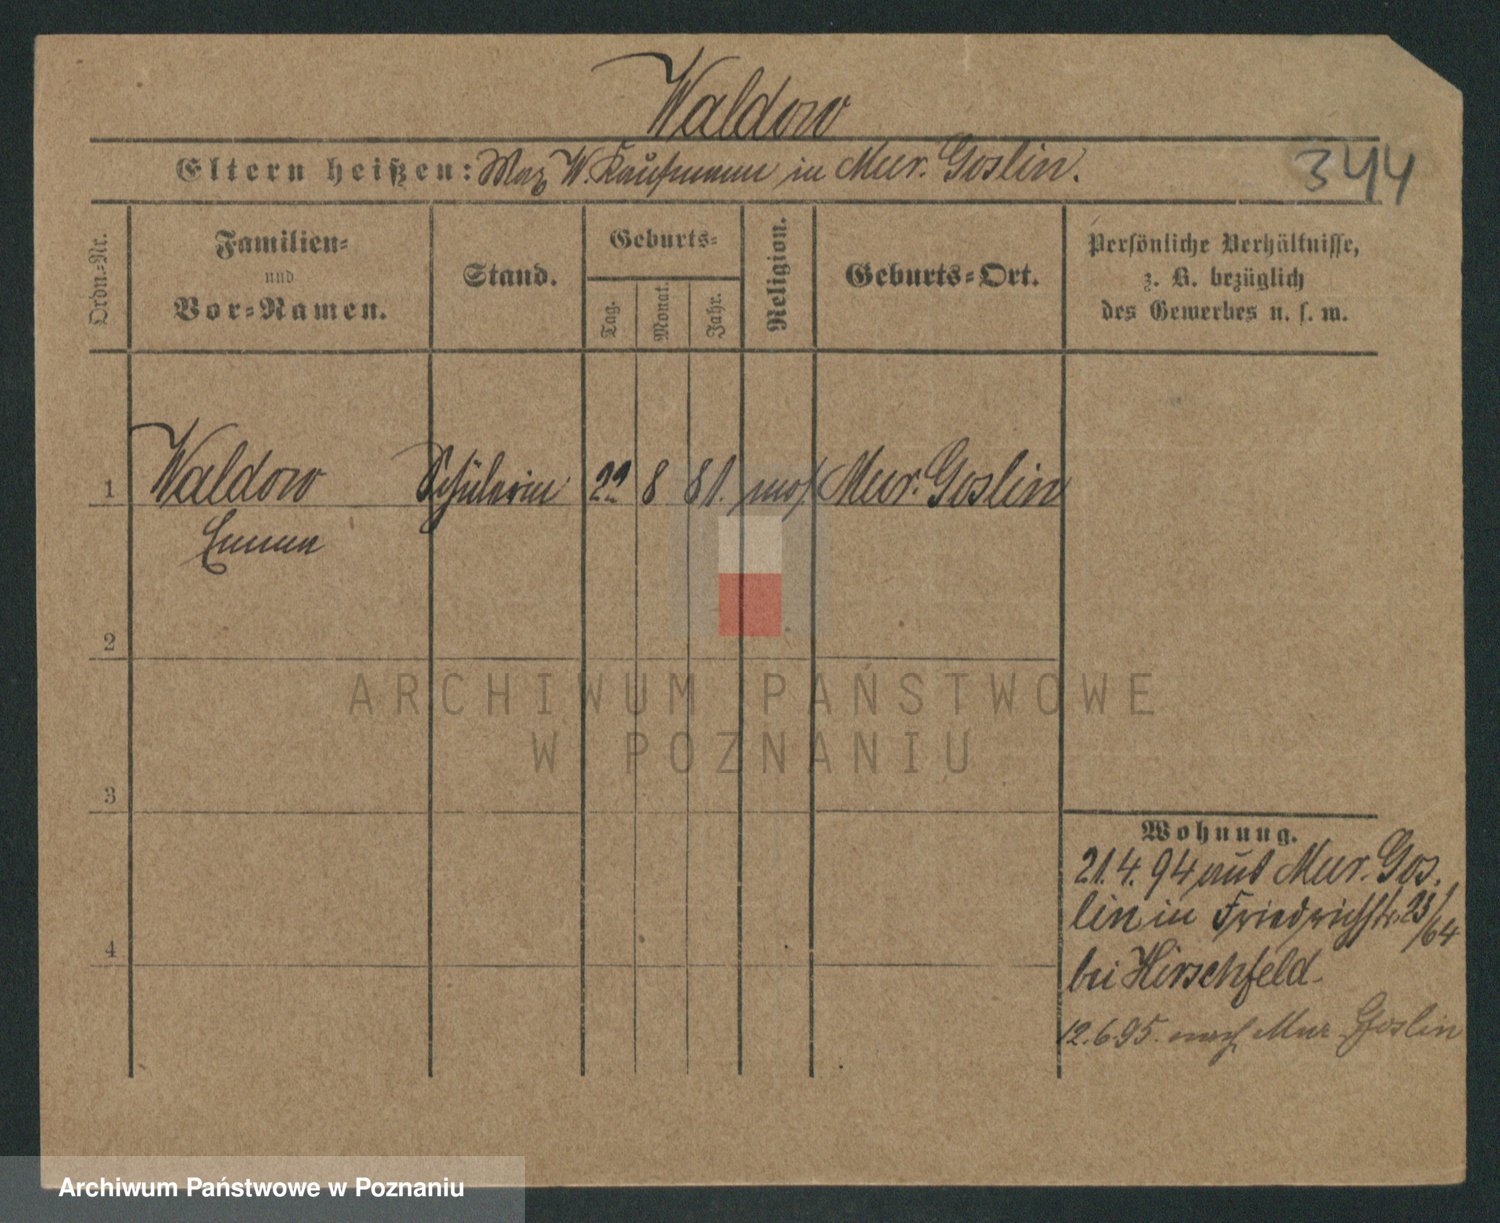 Waldow
Eltern heißen: Max W. Kaufmann in Mur. Goslin.
344
Ordn.-Nr.
Familien-
und
Vor-Namen.
Stand.
Geburts-
Tag.
Monat.
Jahr.
Religion.
Geburts-Ort.
Persönliche Verhältnisse,
z. B. bezüglich
des Gewerbes u. s. w.
1 Waldow Schülerin 22 8 81. mos. Mur. Goslin
Emma
2
3
4
Wohnung.
21.4.94 aus Mur. Gos.
lin in Friedrichstr. 23/64
bei Hirschfeld
12.6.95. nach Mur. Goslin
ARCHIWUM PAŃSTWOWE
W POZNANIU
Archiwum Państwowe w Poznaniu